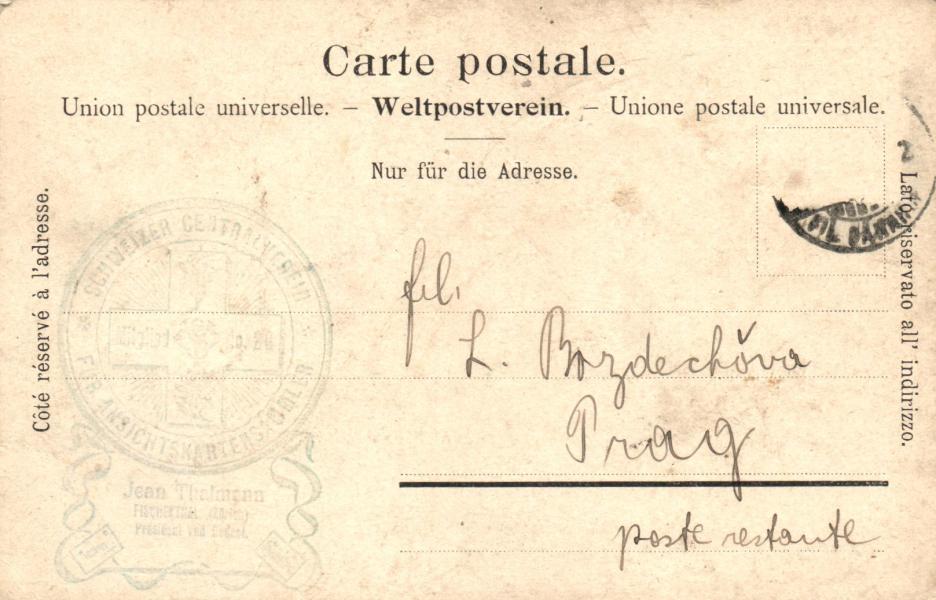 Carte postale.
Union postale universelle. – Weltpostverein. – Unione postale universale.
Nur für die Adresse.
Côté réservé à l'adresse.
Lato riservato all' indirizzo.
SCHWEIZER CENTRALVEREIN
FÜR ANSICHTSKARTENSAMMLER
Jean Thalmann
frl.
L. Bozdechǒva
Prag
poste restante